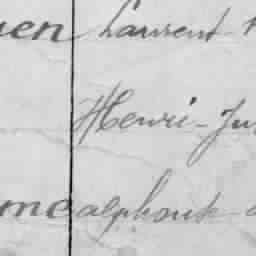 uen Laurent
Henri-Ju
me alphonse